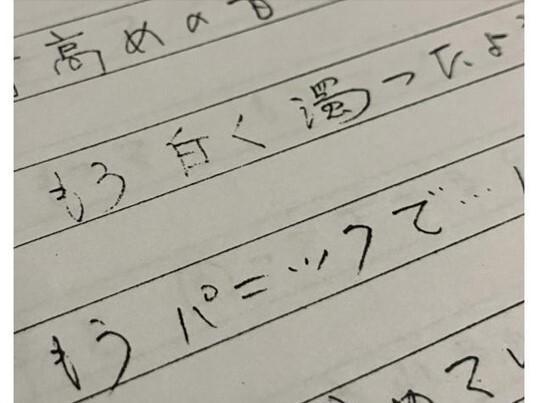 高めの
もう白く濁ったよ
もうパニックで…
めてい